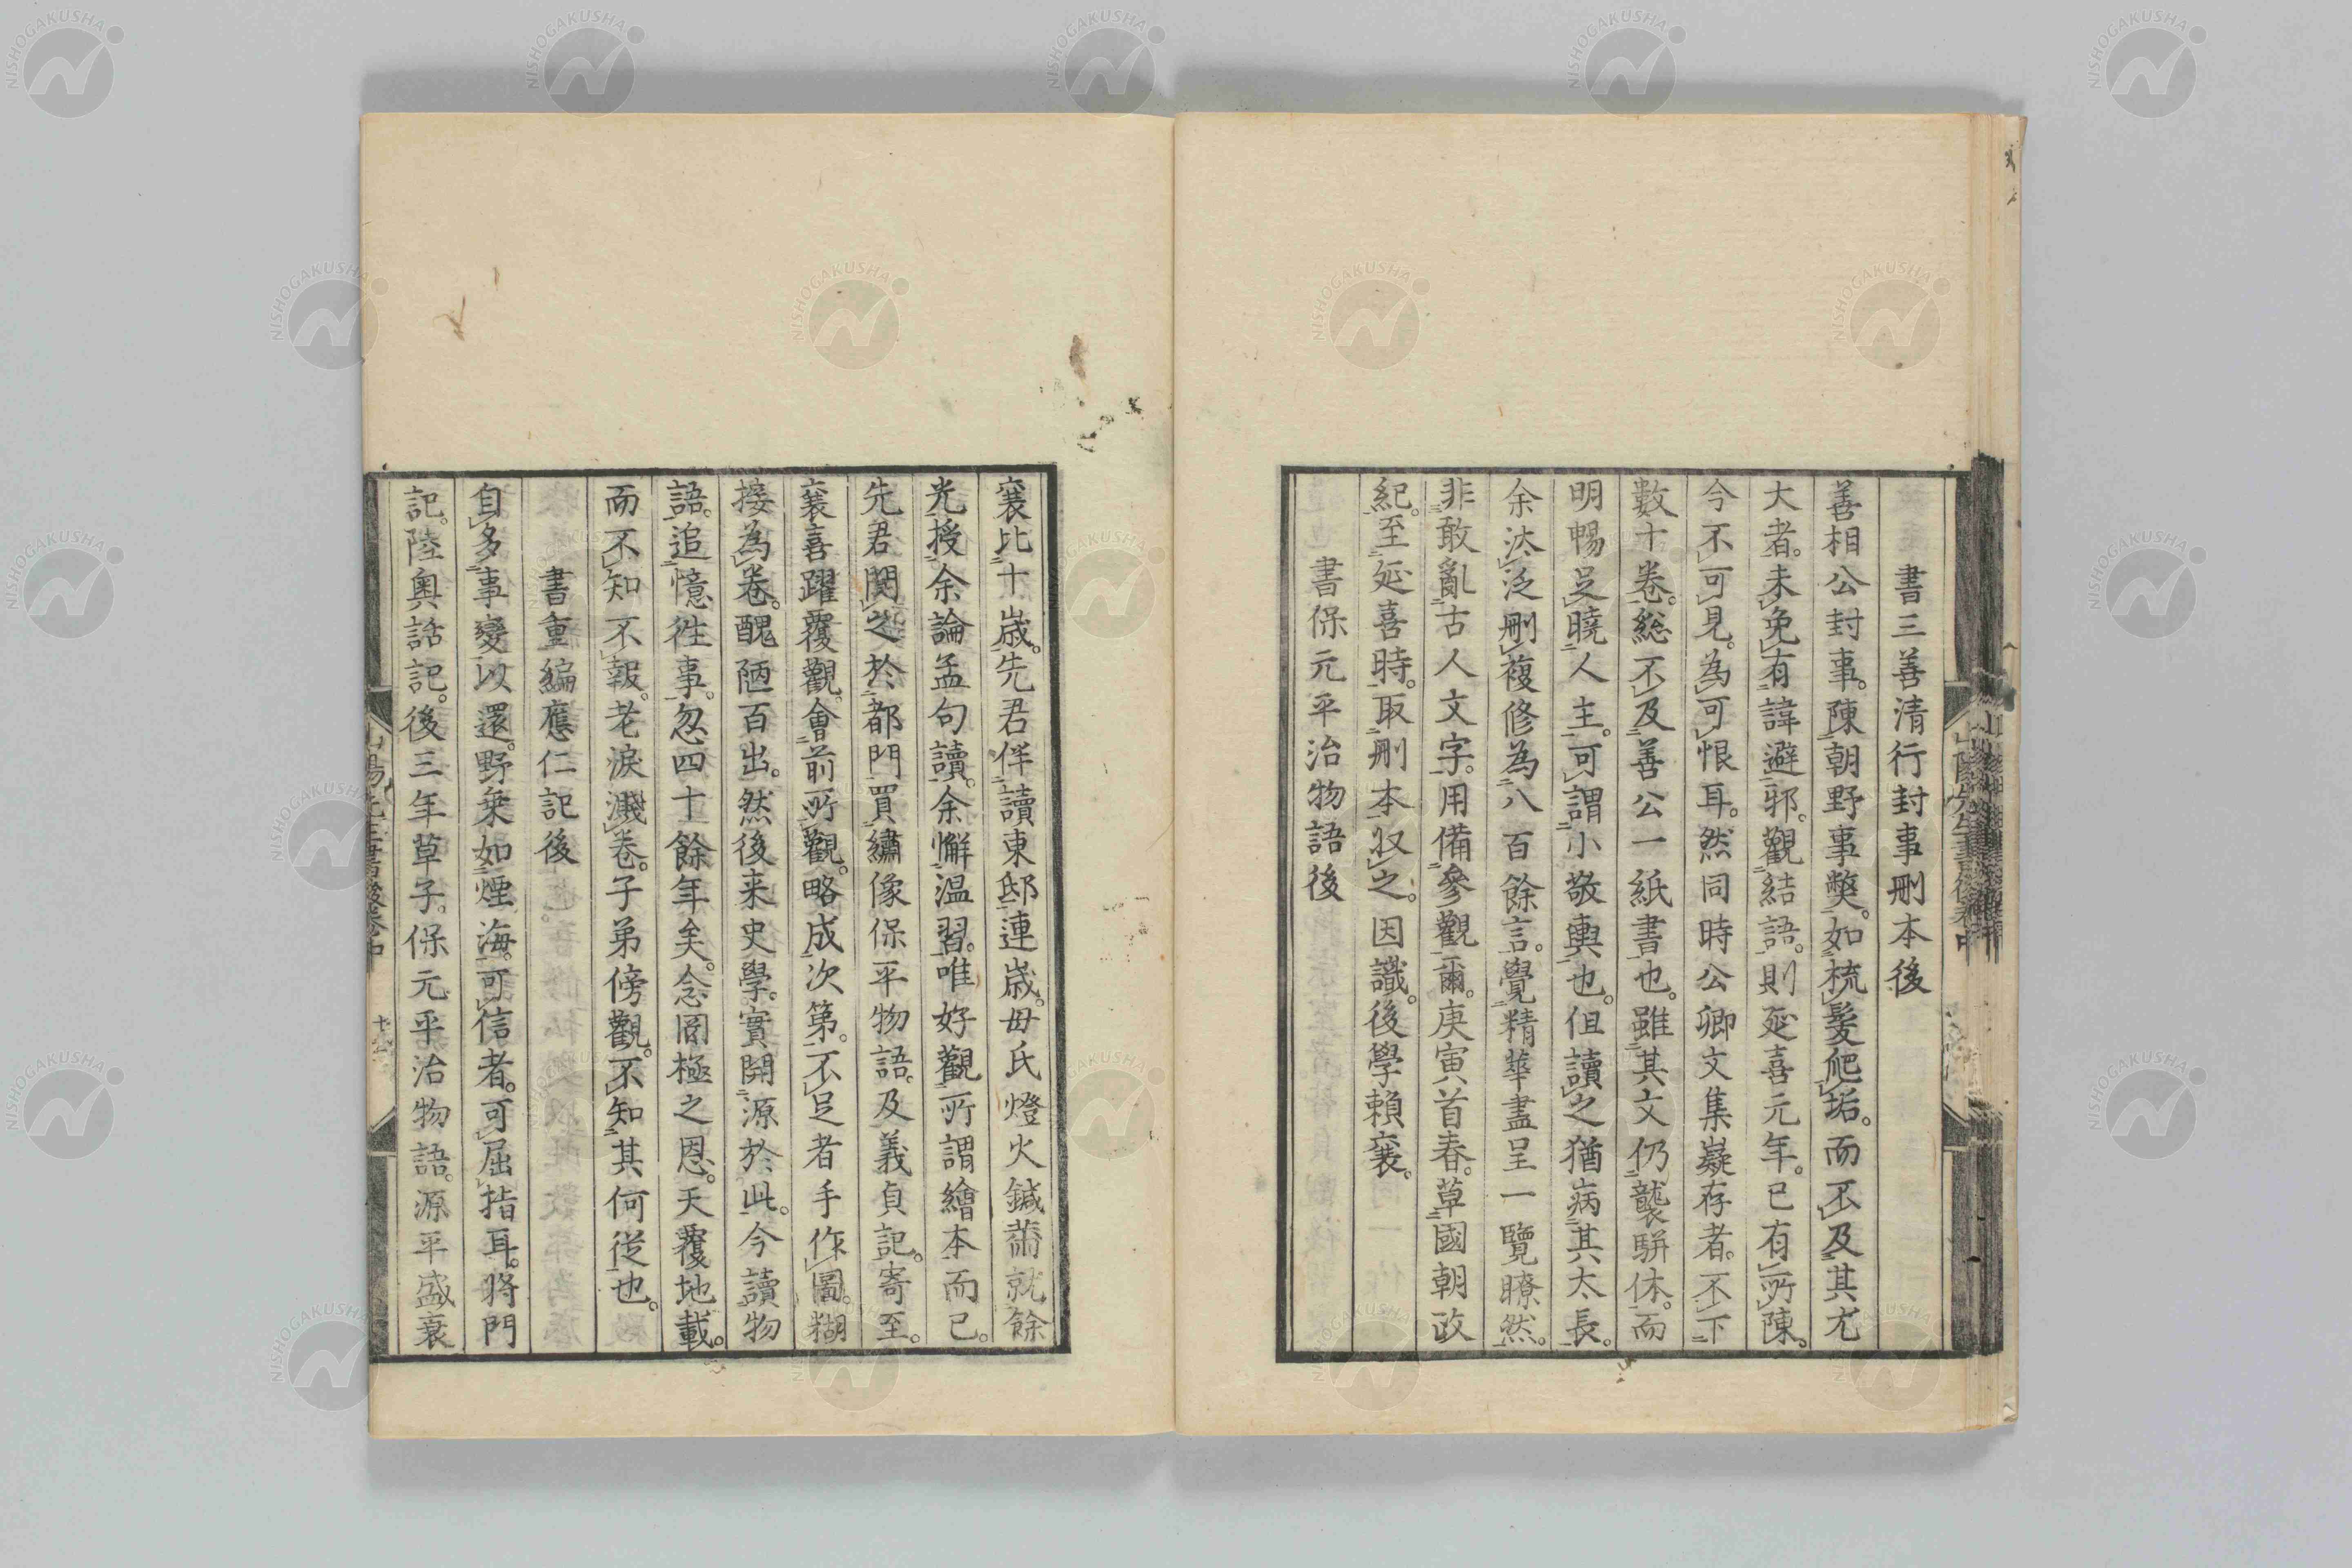 書三善清行封事刪本後
善相公封事。陳朝野事獘。如梳髮爬垢。而不及其尤
大者。未免有諱避邪。觀結語。則延喜元年。已有所陳。
今不可見。為可恨耳。然同時公卿文集嶷存者。不下
數十卷。総不及善公一紙書也。雖其文仍襲駢体。而
明暢足曉人主。可謂小敬輿也。但讀之猶病其太長。
余汰泛刪複修為八百餘言。覺精華盡呈一覽瞭然。
非敢亂古人文字。用備參觀爾。庚寅首春。草國朝政
紀。至延喜時。取刪本収之。因識。後學賴襄。
書保元平治物語後
襄比十歲。先君伴讀東邸連歲。毋氏燈火鍼黹就餘
光授余論孟句讀。余懈温習。唯好觀所謂繪本而已。
先君閔之於都門買繡像保平物語。及義貞記。寄至。
襄喜躍覆觀。會前所觀。略成次第。不足者手作圖。糊
接為卷。醜陋百出。然後来史學。實開源於此。今讀物
語。追憶徃事。忽四十餘年矣。念罔極之恩。天覆地載。
而不知不報。老淚濺卷。子弟傍觀。不知其何從也。
書重編應仁記後
自多事變以還。野乗如煙海。可信者。可屈指耳。將門
記。陸奥話記。後三年草子。保元平治物語。源平盛衰
山陽先生書後卷中
NISHOGAKUSHA